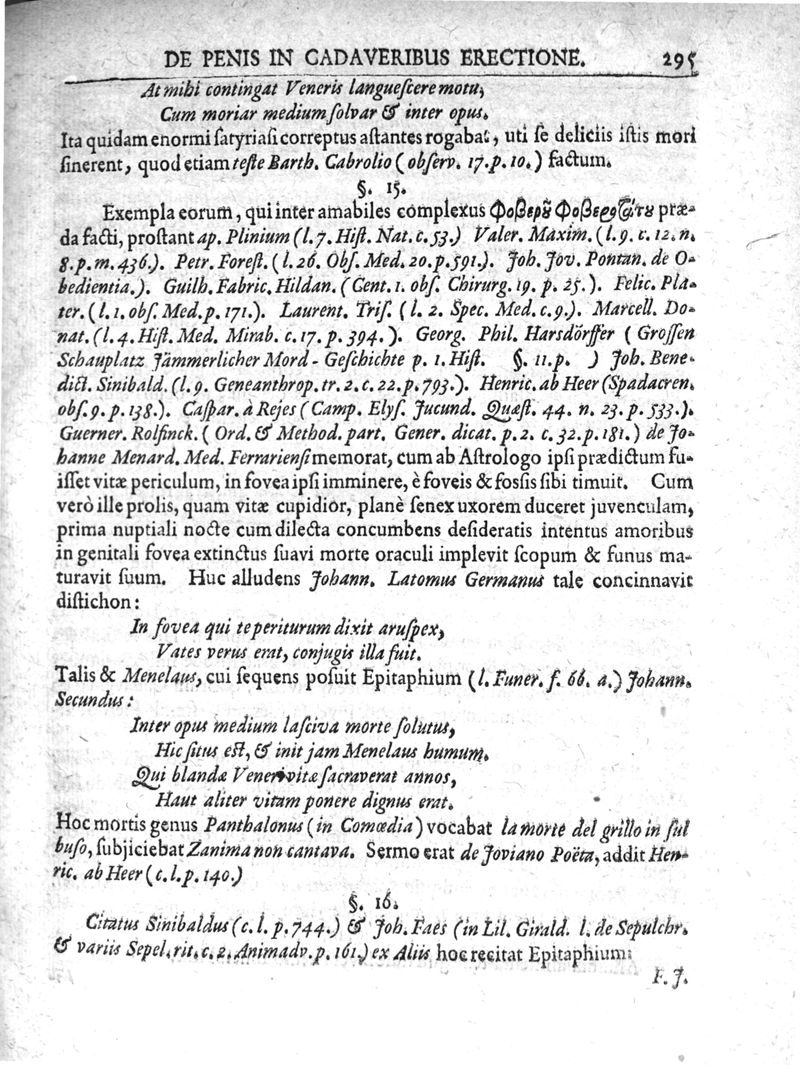 DE PENIS IN CADAVERIBUS ERECTIONE. 295
At mihi contingat Veneris languescere motu,
Cum moriar medium solvar & inter opus.
Ita quidam enormi satyriasi correptus astantes rogabat, uti se deliciis istis mori
sinerent, quod etiam teste Barth. Cabrolio (observ. 17. p. 10.) factum.
§. 15.
Exempla eorum, qui inter amabiles complexus præ-
da facti, prostant ap. Plinium (l. 7. Hist. Nat. c. 53.) Valer. Maxim. (l. 9. c. 12. n.
8. p. m. 436.). Petr. Forest. (l. 26. Obs. Med. 20. p. 591.). Joh. Jov. Pontan. de O-
bedientia.). Guilh. Fabric. Hildan. (Cent. 1. obs. Chirurg. 19. p. 25.). Felic. Pla-
ter. (l. 1. obs. Med. p. 171.). Laurent. Tris. (l. 2. Spec. Med. c. 9.). Marcell. Do-
nat. (l. 4. Hist. Med. Mirab. c. 17. p. 394.). Georg. Phil. Harsdörffer (Grossen
Schauplatz Jämmerlicher Mord-Geschichte p. 1. Hist. §. 11. p. ) Joh. Bene-
dict. Sinibald. (l. 9. Geneanthrop. tr. 2. c. 22. p. 793.). Henric. ab Heer (Spadacren.
obs. 9. p. 138.). Caspar. à Rejes (Camp. Elys. Jucund. Quæst. 44. n. 23. p. 533.).
Guerner. Rolfinck. (Ord. & Method. part. Gener. dicat. p. 2. c. 32. p. 181.) de Jo-
hanne Menard. Med. Ferrariensi memorat, cum ab Astrologo ipsi prædictum fu-
isset vitæ periculum, in fovea ipsi imminere, è foveis & fossis sibi timuit. Cum
verò ille prolis, quam vitæ cupidior, planè senex uxorem duceret juvenculam,
prima nuptiali nocte cum dilecta concumbens desideratis intentus amoribus
in genitali fovea extinctus suavi morte oraculi implevit scopum & funus ma-
turavit suum. Huc alludens Johann. Latomus Germanus tale concinnavit
distichon:
In fovea qui te periturum dixit aruspex,
Vates verus erat, conjugis illa fuit.
Talis & Menelaus, cui sequens posuit Epitaphium (l. Funer. f. 66. a.) Johann.
Secundus:
Inter opus medium lasciva morte solutus,
Hic situs est, & init jam Menelaus humum.
Qui blandæ Veneri vitæ sacraverat annos,
Haut aliter vitam ponere dignus erat.
Hoc mortis genus Panthalonus (in Comœdia) vocabat la morte del grillo in sul
buso, subjiciebat Zanima non cantava. Sermo erat de Joviano Poëta, addit Hen-
ric. ab Heer (c. l. p. 140.)
§. 16.
Citatus Sinibaldus (c. l. p. 744.) & Joh. Faes (in Lil. Girald. l. de Sepulchr.
& variis Sepel. rit. c. 2. Animadv. p. 161.) ex Aliis hoc recitat Epitaphium:
F. J.